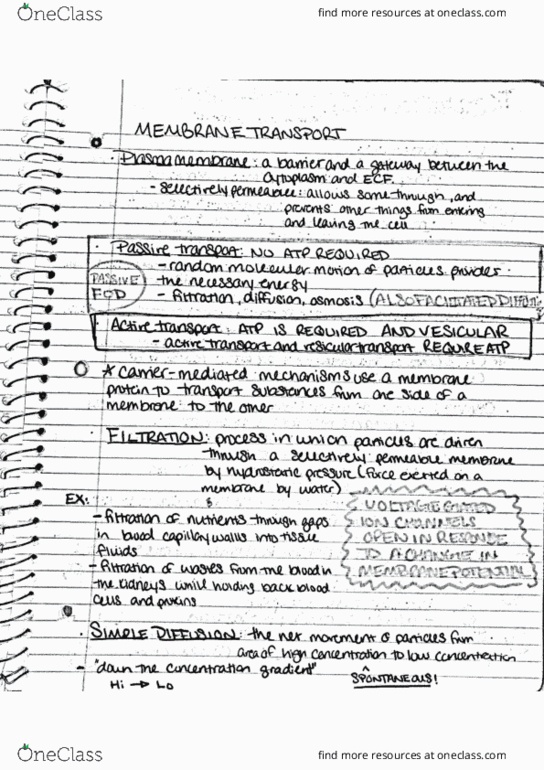 OneClass
find more resources at oneclass.com
MEMBRANE TRANSPORT
· Plasma membrane: a barrier and a gateway between the
cytoplasm and ECF.
- Selectively permeable: allows some through, and
prevents other things from entering
and leaving the cell
· Passive transport: NO ATP REQUIRED
- random molecular motion of particles provides
the necessary energy
PASSIVE
FOD
- filtration, diffusion, osmosis (ALSO FACILITATED DIFFUSION
· Active transport: ATP IS REQUIRED AND VESICULAR
- active transport and vesicular transport REQUIRE ATP
* carrier-mediated mechanisms use a membrane
protein to transport substances from one side of a
membrane to the other
· FILTRATION: process in which particles are driven
through a selectively permeable membrane
by hydrostatic pressure (force exerted on a
membrane by water)
EX:
- filtration of nutrients through gaps
in blood capillary walls into tissue
fluids
- filtration of wastes from the blood in
the kidneys while holding back blood
cells and proteins
VOLTAGE GATED
ION CHANNELS
OPEN IN RESPONSE
TO A CHANGE IN
MEMBRANE POTENTIAL
· SIMPLE DIFFUSION: the net movement of particles from
area of high concentration to low concentration
- "down the concentration gradient"
Hi → Lo
^ SPONTANEOUS!
OneClass
find more resources at oneclass.com